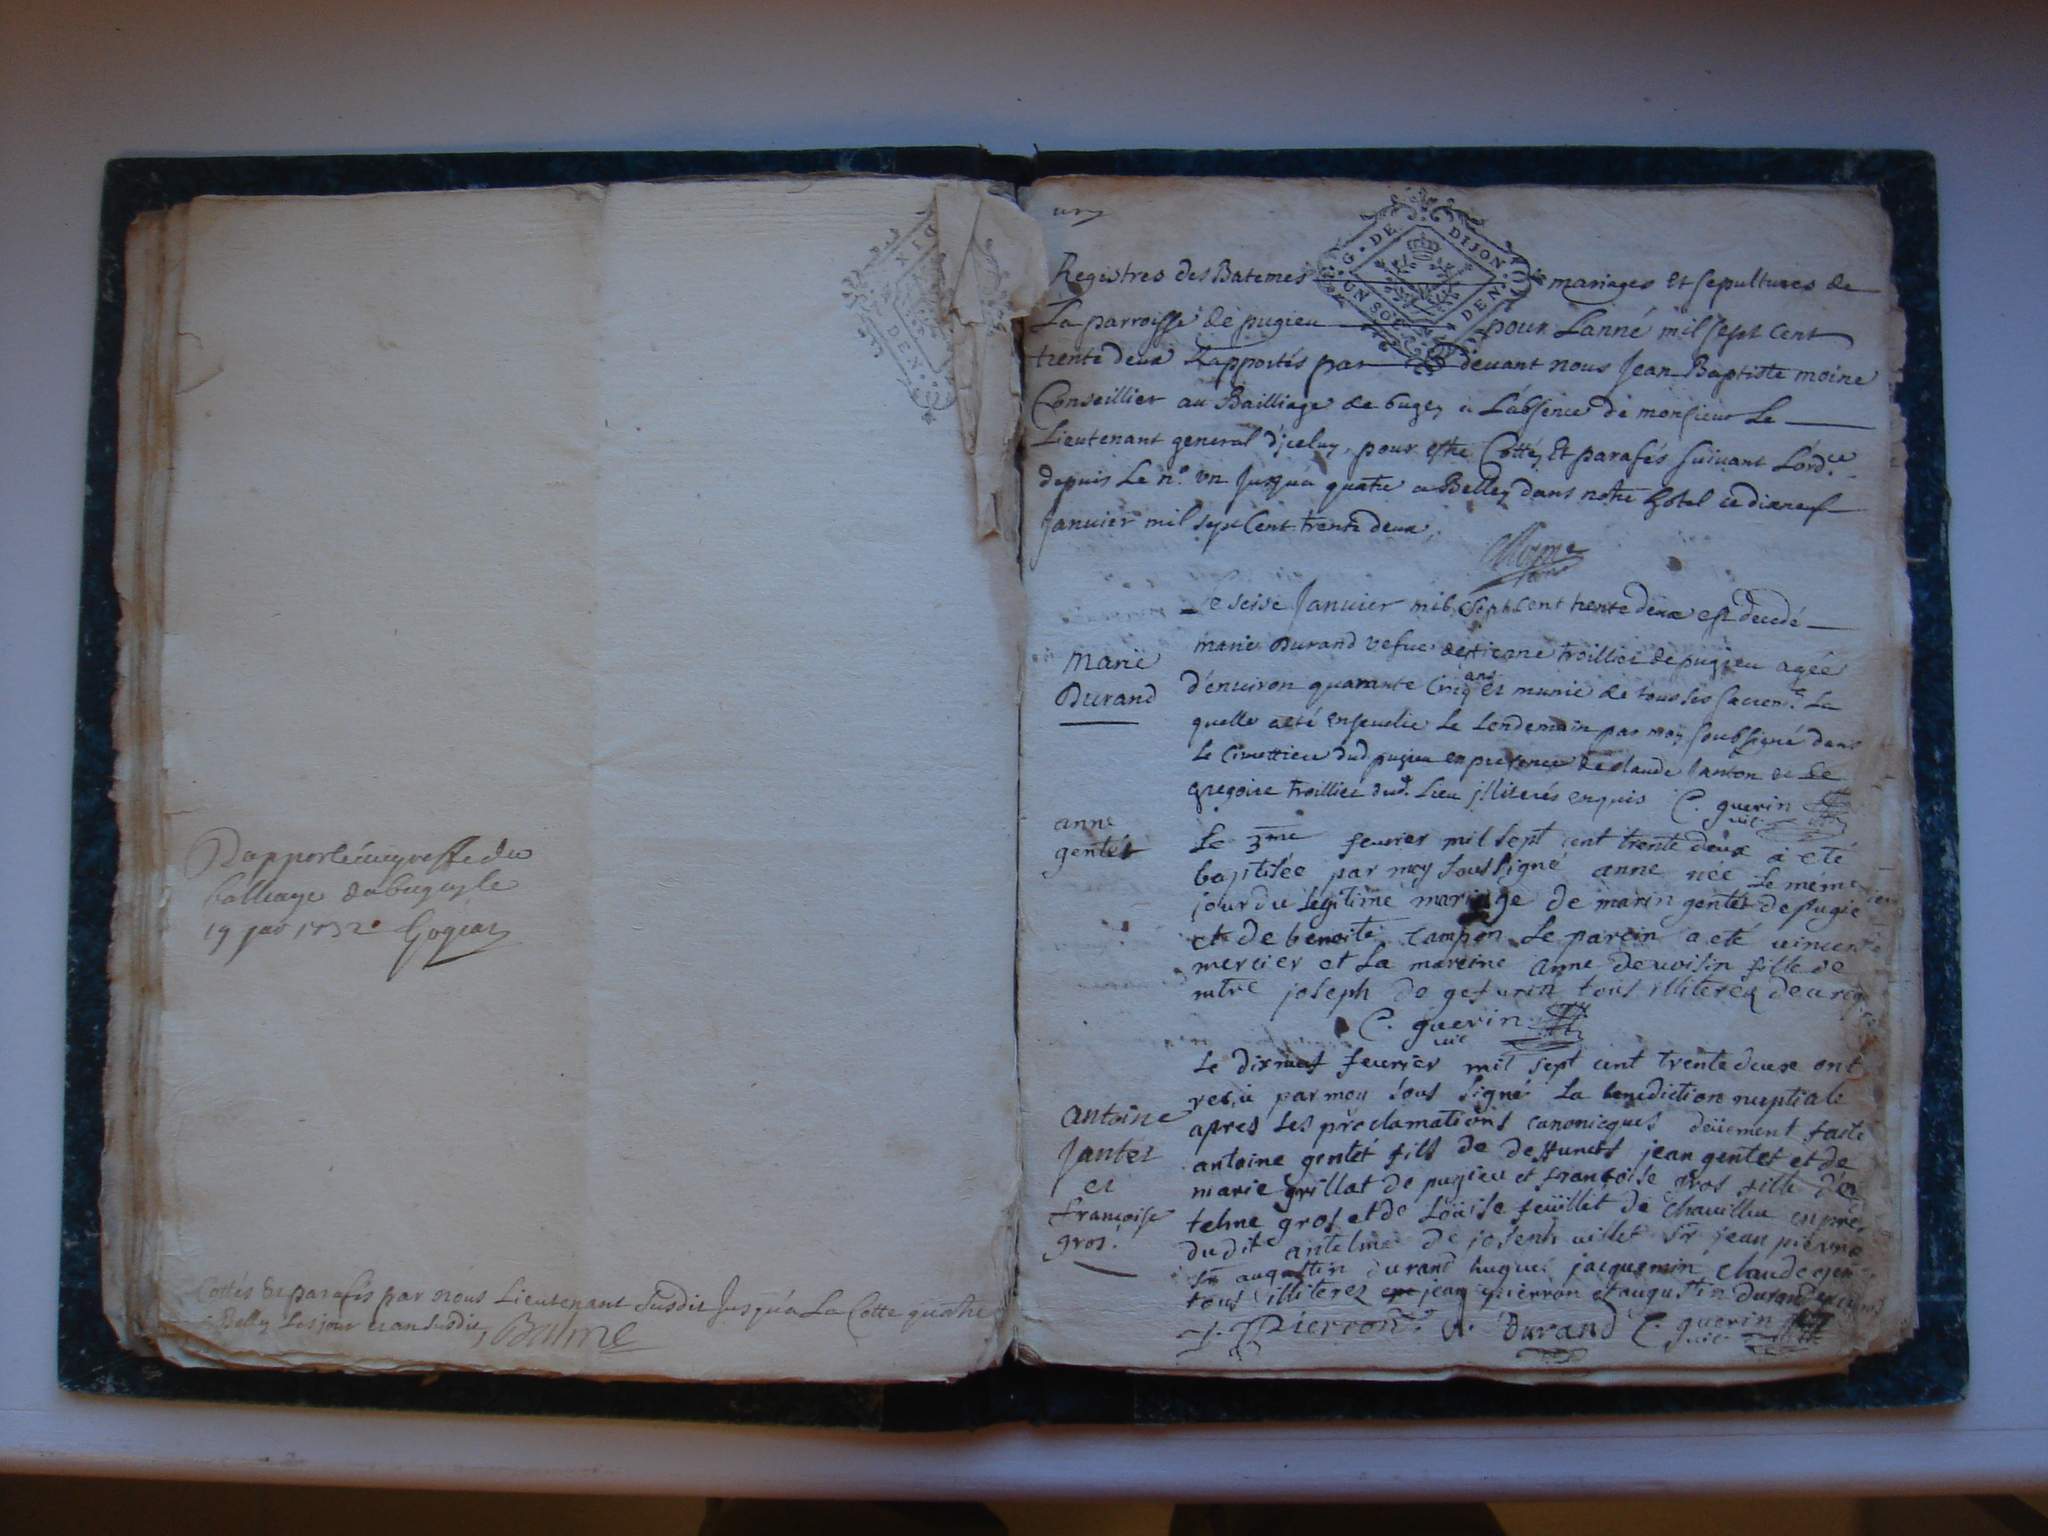 Rapporté au greffe du
balliage du bugey le
19 janv 1732
Cottés Et parafés par nous Lieutenant Susdit Jusqu'a La Cotte quatre
Belley Les jour et an susdit, Balme
un
G. DE DIJON
UN SOL DEN
Registres des Batemes mariages Et sepultures de
La parroisse de pugieu pour Lanné mil sept Cent
trente deux Rapportés par devant nous Jean Baptiste moine
Conseillier au Bailliage de bugey a L'absence de monsieur Le
Lieutenant general d'jceluy, pour estre Cottés Et parafés suivant L'ord.ce
depuis Le n.º vn Jusqu'a quatre a Belley dans notre hotel ce dixneuf
Janvier mil sept Cent trente deux,
Moyne
Le seise Janvier mil sept Cent trente deux est decedé
marie Durand vefue de troillier de pugieu agée
Marie
Durand
d'enuiron quarante Cinq ans et munie de tous les sacrem.ts La
quelle a eté enseuelie Le Lendemain par moy soubsigné dans
Le cimettiere dud pugieu en presence de claude Janton et de
gregoire troillier dud. Lieu jlliterés enquis C. guerin
vic
anne
gentet
Le 3me feurier mil sept cent trente deux a eté
baptisée par moy sous signé anne née Le méme
jour du legitime mariage de marin gentet de pugie
et de benoite tampon Le parein a eté vincent
mercier et La mareine anne deuoisin fille de
mtre joseph de tous illiterez
C. guerin
vic
Le dixneuf feurier mil sept cent trente deux ont
reçu par moy sous signé La benediction nuptiale
apres Les proclamations canonicques deüement faite
Antoine
Jantet
et
françoise
gros.
antoine gentet fils de deffuncts jean gentet et de
marie grillat de pugieu et françoise gros fille d'an
telme gros et de Loüise feüillet de en pre
dudit antelme de joseph uillet Sr jean pierron
Sr augustin durand hugues jacquemin claude gen
tous illiterez jean pierron et augustin durand
J. Pierron A. Durand C. guerin
vic